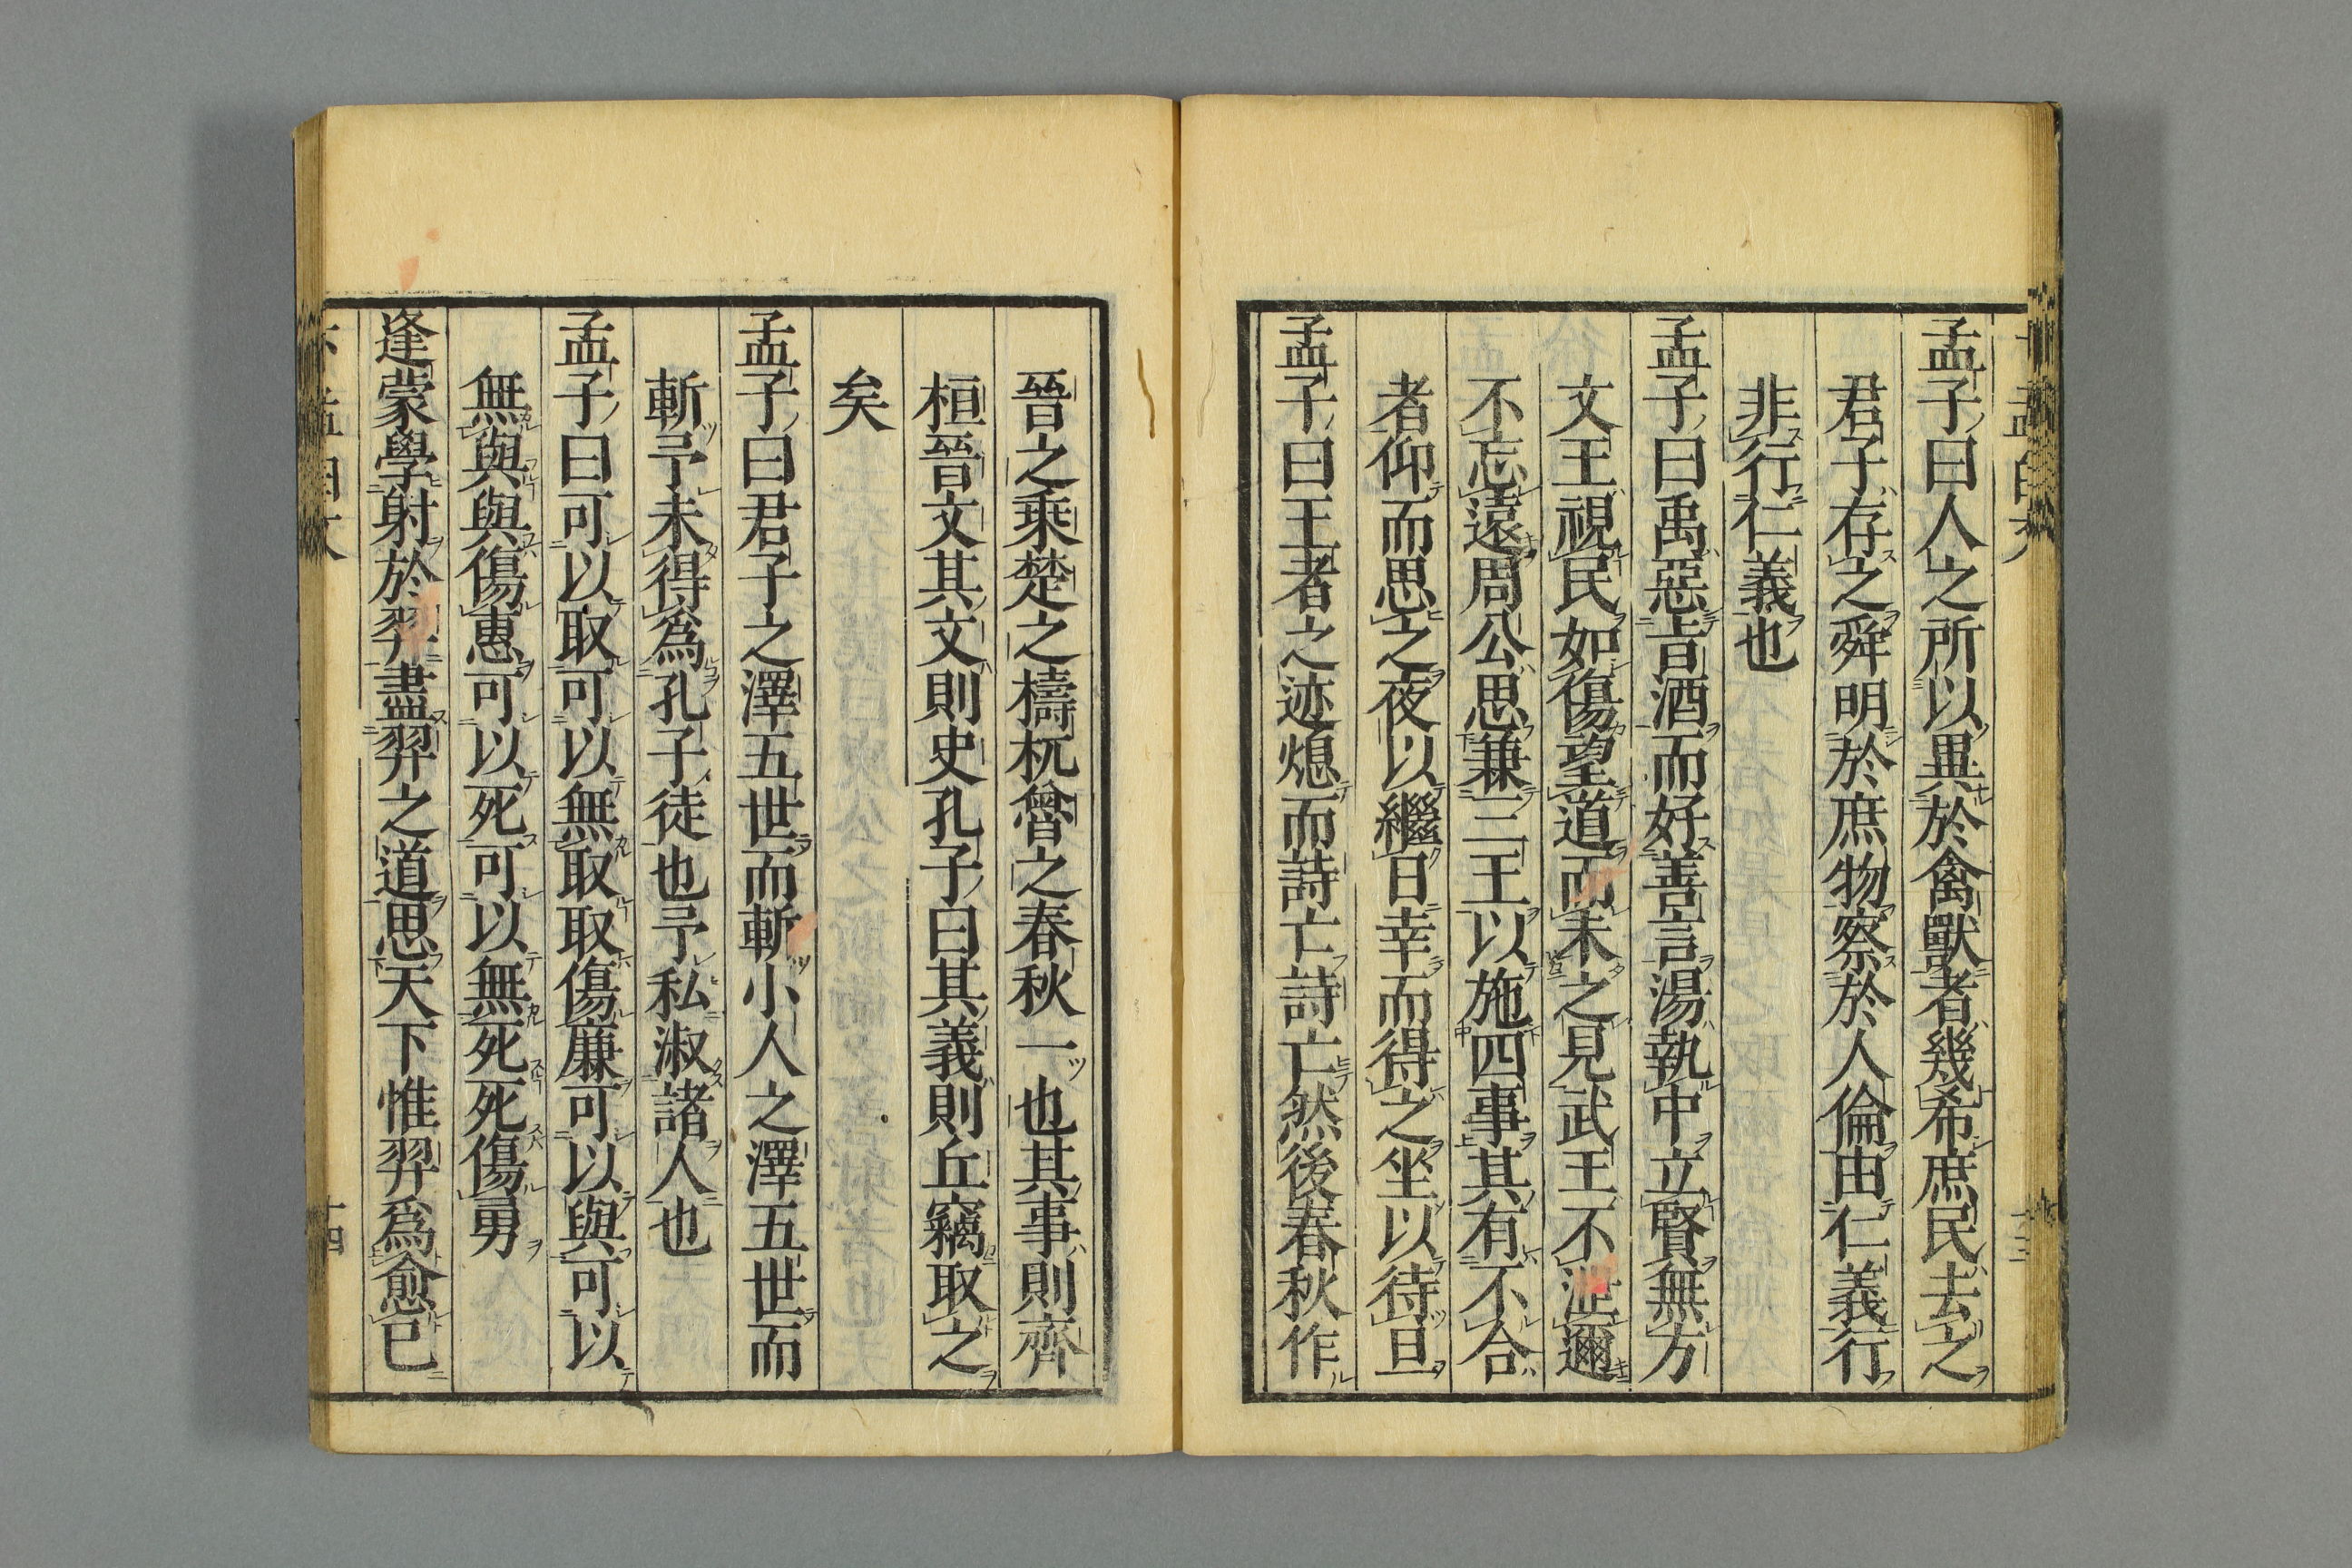 孟子曰人之所以異於禽獸者幾希庶民去之
君子存之舜明於庶物察於人倫由仁義行
非行仁義也
孟子曰禹惡旨酒而好善言湯執中立賢無方
文王視民如傷望道而未之見武王不泄邇
不忘遠周公思兼三王以施四事其有不合
者仰而思之夜以繼日幸而得之坐以待旦
孟子曰王者之迹熄而詩亡詩亡然後春秋作
晉之乘楚之檮杌曾之春秋一也其事則齊
桓晉文其文則史孔子曰其義則丘竊取之
矣
孟子曰君子之澤五世而斬小人之澤五世而
斬予未得爲孔子徒也予私淑諸人也
孟子曰可以取可以無取取傷廉可以與可以
無與與傷惠可以死可以無死死傷勇
逄蒙學射於羿盡羿之道思天下惟羿爲愈已
十四